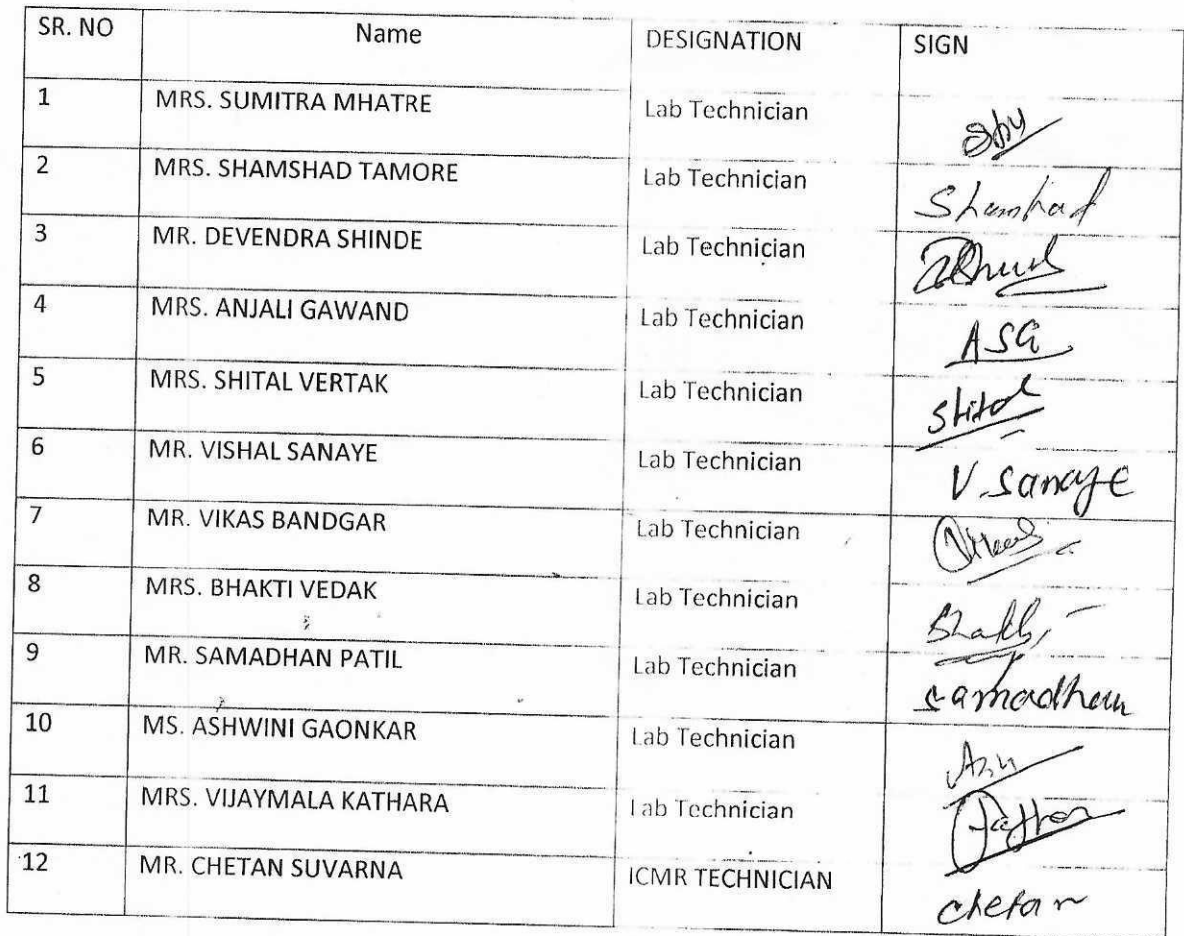 SR. NO Name DESIGNATION SIGN
1 MRS. SUMITRA MHATRE Lab Technician
2 MRS. SHAMSHAD TAMORE Lab Technician Shamshad
3 MR. DEVENDRA SHINDE Lab Technician
4 MRS. ANJALI GAWAND Lab Technician ASG
5 MRS. SHITAL VERTAK Lab Technician Shital
6 MR. VISHAL SANAYE Lab Technician V. Sanaye
7 MR. VIKAS BANDGAR Lab Technician
8 MRS. BHAKTI VEDAK Lab Technician
9 MR. SAMADHAN PATIL Lab Technician samadhan
10 MS. ASHWINI GAONKAR Lab Technician
11 MRS. VIJAYMALA KATHARA Lab Technician
12 MR. CHETAN SUVARNA ICMR TECHNICIAN chetan